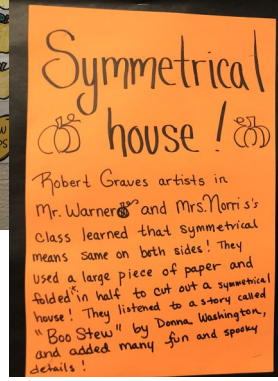 Symmetrical
house!
Robert Graves artists in
Mr. Warner and Mrs. Norris's
class learned that symmetrical
means same on both sides! They
used a large piece of paper and
folded in half to cut out a symmetrical
house! They listened to a story called
"Boo Stew" by Donna Washington,
and added many fun and spooky
details!